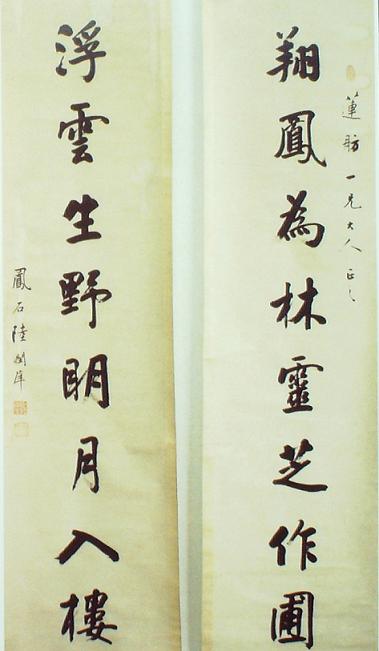 蓮舫一兄大人正之
翔鳳為林靈芝作圃
浮雲生野明月入樓
鳳石陸潤庠